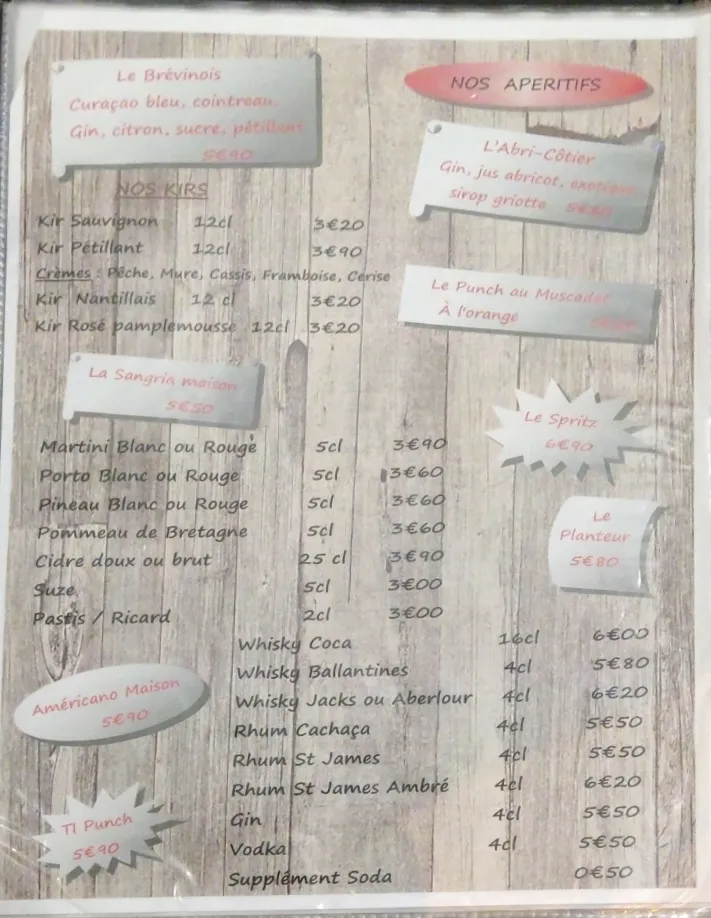 Le Brévinois
Curaçao bleu, cointreau,
Gin, citron, sucre, pétillant
5€90
NOS APERITIFS
L'Abri-Côtier
Gin, jus abricot, exotique,
sirop griotte
NOS KIRS
Kir Sauvignon 12cl 3€20
Kir Pétillant 12cl 3€90
Crèmes : Pêche, Mure, Cassis, Framboise, Cerise
Kir Nantillais 12 cl 3€20
Kir Rosé pamplemousse 12cl 3€20
Le Punch au Muscadet
À l'orange
La Sangria maison
5€50
Le Spritz
6€90
Martini Blanc ou Rouge 5cl 3€90
Porto Blanc ou Rouge 5cl 3€60
Pineau Blanc ou Rouge 5cl 3€60
Pommeau de Bretagne 5cl 3€60
Cidre doux ou brut 25 cl 3€90
Suze 5cl 3€00
Pastis / Ricard 2cl 3€00
Le
Planteur
5€80
Whisky Coca 16cl 6€00
Whisky Ballantines 4cl 5€80
Whisky Jacks ou Aberlour 4cl 6€20
Rhum Cachaça 4cl 5€50
Rhum St James 4cl 5€50
Rhum St James Ambré 4cl 6€20
Gin 4cl 5€50
Vodka 4cl 5€50
Supplément Soda 0€50
Américano Maison
5€90
TI Punch
5€90